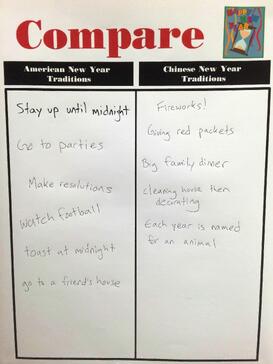 Compare
American New Year
Traditions
Chinese New Year
Traditions
Stay up until midnight
Go to parties
Make resolutions
watch football
toast at midnight
go to a friend's house
Fireworks!
Giving red packets
Big family dinner
cleaning house then
decorating
Each year is named
for an animal